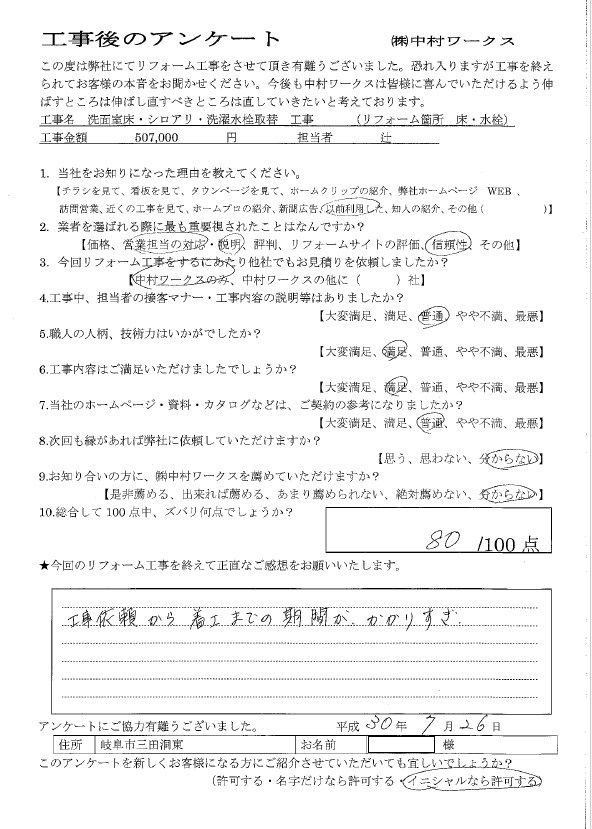 工事後のアンケート ㈱中村ワークス
この度は弊社にてリフォーム工事をさせて頂き有難うございました。恐れ入りますが工事を終え
られてお客様の本音をお聞かせください。今後も中村ワークスは皆様に喜んでいただけるよう伸
ばすところは伸ばし直すべきところは直していきたいと考えております。
工事名 洗面室床・シロアリ・洗濯水栓取替 工事 (リフォーム箇所 床・水栓)
工事金額 507,000 円 担当者 辻
1. 当社をお知りになった理由を教えてください。
【チラシを見て、看板を見て、タウンページを見て、ホームクリップの紹介、弊社ホームページ WEB、
訪問営業、近くの工事を見て、ホームプロの紹介、新聞広告、以前利用した、知人の紹介、その他( )】
2. 業者を選ばれる際に最も重要視されたことはなんですか?
【価格、営業担当の対応・説明、評判、リフォームサイトの評価、信頼性、その他】
3. 今回リフォーム工事をするにあたり他社でもお見積りを依頼しましたか?
【中村ワークスのみ、中村ワークスの他に( )社】
4.工事中、担当者の接客マナー・工事内容の説明等はありましたか?
【大変満足、満足、普通、やや不満、最悪】
5.職人の人柄、技術力はいかがでしたか?
【大変満足、満足、普通、やや不満、最悪】
6.工事内容はご満足いただけましたでしょうか?
【大変満足、満足、普通、やや不満、最悪】
7.当社のホームページ・資料・カタログなどは、ご契約の参考になりましたか?
【大変満足、満足、普通、やや不満、最悪】
8.次回も縁があれば弊社に依頼していただけますか?
【思う、思わない、分からない】
9.お知り合いの方に、㈱中村ワークスを薦めていただけますか?
【是非薦める、出来れば薦める、あまり薦められない、絶対薦めない、分からない】
10.総合して100点中、ズバリ何点でしょうか?
80 /100点
★今回のリフォーム工事を終えて正直なご感想をお願いいたします。
工事依頼から着工までの期間が、かかりすぎ.
アンケートにご協力有難うございました。 平成 30年 7月 26日
住所 岐阜市三田洞東 お名前 様
このアンケートを新しくお客様になる方にご紹介させていただいても宜しいでしょうか?
(許可する・名字だけなら許可する・イニシャルなら許可する)